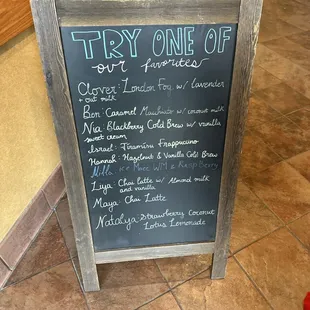 TRY ONE OF
our favorites
Clover: London Fog w/ lavender
+ oat milk
Ben: Caramel Macchiato w/ coconut milk
Nia: Blackberry Cold Brew w/ vanilla
sweet cream
Israel: Tiramisu Frappuccino
Hannah: Hazelnut & Vanilla Cold Brew
Iced WM w/ Raspberry
Luya: Chai latte w/ Almond milk
and vanilla
Maya: Chai Latte
Natalya Strawberry Coconut
Lotus Lemonade